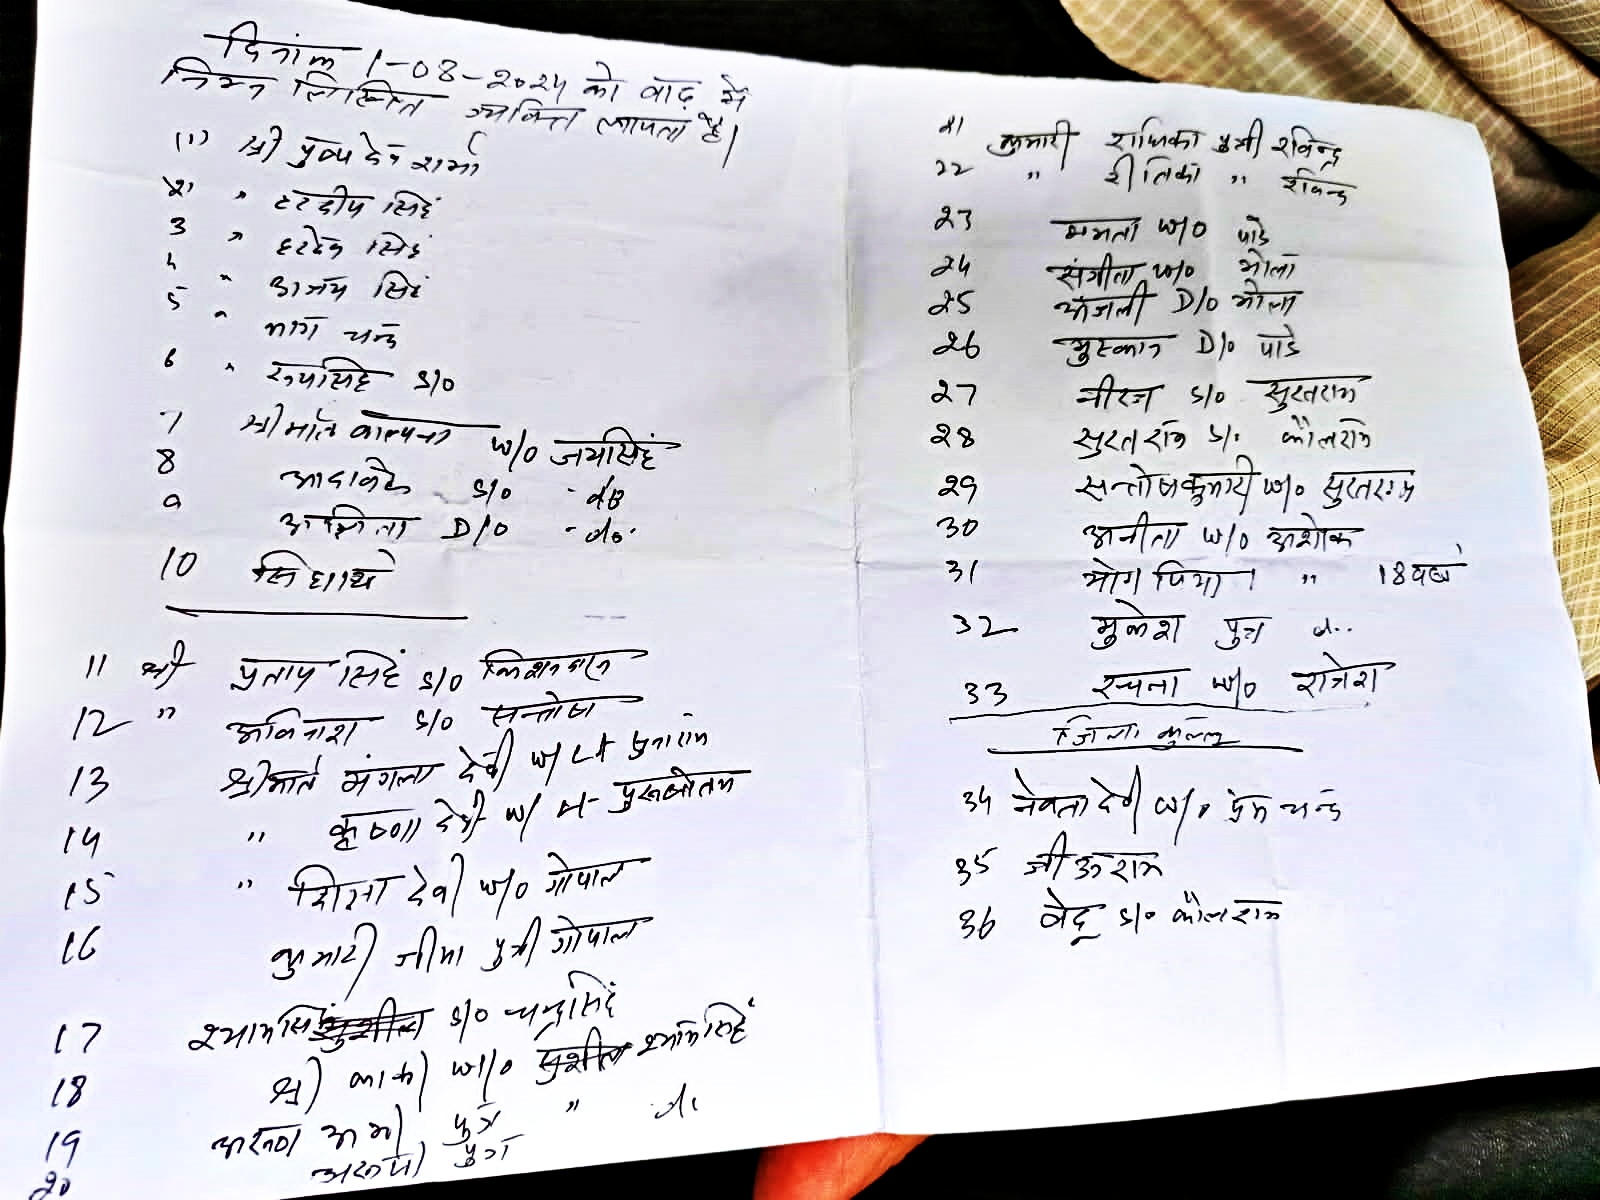 दिनांक 1-08-2024 को बाढ़ में
निम्न लिखित व्यक्ति लापता है।
(1) श्री पुष्प देव शर्मा
2) " हरदीप सिहं
3 " हरदेव सिहं
4 " अजय सिहं
5 " भाग चन्द
6 " रूपसिहं S/O
7 श्रीमति कल्पना W/O जयसिहं
8 S/O - do
9 अक्षिता D/O - do -
10 सिधार्थ
11 श्री प्रताप सिहं S/O
12 " अविनाश S/O सन्तोष
13 श्रीमति मंगला देवी W/ Lt
14 " कृष्णा देवी W/ Lt पुरूषोतम
15 " शिला देवी W/O गोपाल
16 कुमारी जीया पुत्री गोपाल
17 श्यामसिहं S/O चन्द्रसिहं
18 श्री W/O श्यामसिहं
19 पुत्र " do
20 पुत्र
21 कुमारी राधिका पुत्री रविन्द्र
22 " रीतिका " रविन्द्र
23 ममता W/O पांडे
24 संगीता W/O भोला
25 अंजली D/O भोला
26 मुस्कान D/O पांडे
27 नीरज S/O सुरतराम
28 सुरत राम S/O कौलराम
29 सन्तोषकुमारी W/O सुरतराम
30 अनीता W/O अशोक
31 योग प्रिया " 18 वर्ष
32 मुकेश पुत्र do
33 रचना W/O राजेश
जिला कुल्लू
34 देवी W/O प्रेम चन्द
35 राम
36 वेदू S/O कौलराम